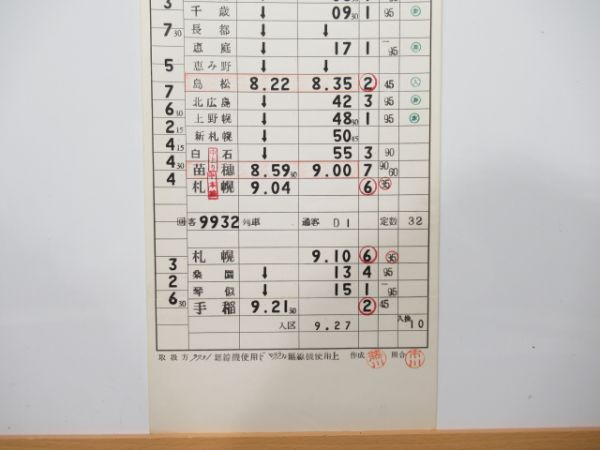 3
千歳 ↓ 09 30 1 95
7 30 長都 ↓ ↓
恵庭 ↓ 17 1 95
5 恵み野 ↓ ↓
7 島松 8.22 8.35 2 45 入
6 30 北広島 ↓ 42 3 95
2 15 上野幌 ↓ 48 30 1 95
4 15 新札幌 ↓ 50 45
白石 ↓ 55 3 90
4 30 苗穂 8.59 30 9.00 7 90 60
4 札幌 9.04 6 35
回客9932列車 通客 D1 定数 32
札幌 9.10 6 95
3 桑園 ↓ 13 4 95
2 琴似 ↓ 15 1 95
6 30 手稲 9.21 30 2 45
入区 9.27 入換 10
取扱方 線機使用上 作成 照合